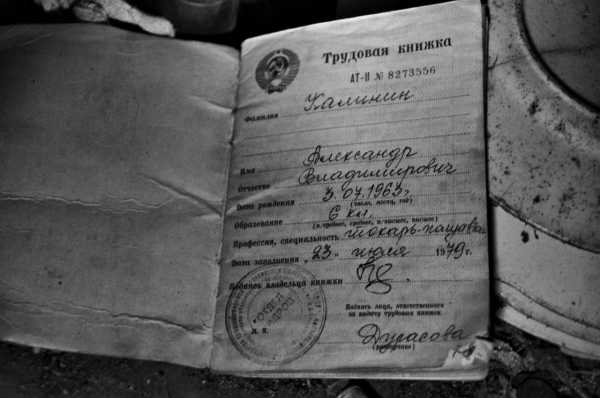 Трудовая книжка
АТ-II № 8273556
Фамилия Калинин
Имя Александр
Отчество Владимирович
Дата рождения 3.07.1963г
(число, месяц, год)
Образование 6 кл.
Профессия, специальность токарь-
Дата заполнения „23" июля 1979 г.
Подпись владельца книжки
М. П.
Подпись лица, ответственного
за выдачу трудовых книжек
Дурасова
(разборчиво)